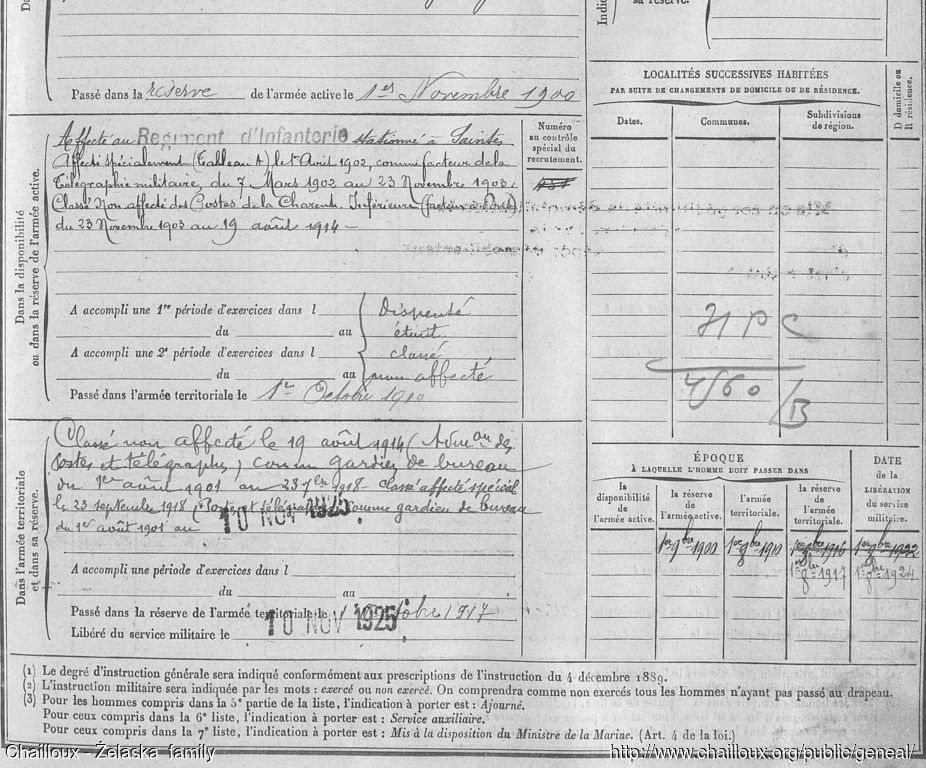 Passé dans la réserve de l'armée active le 1er Novembre 1900
Dans la disponibilité
ou dans la réserve de l'armée active.
Affecté au Regiment d'Infanterie stationné à Saintes
Affecté spécialement (Tableau A) le 1er Avril 1902, comme facteur de la
Télégraphie militaire, du 7 Mars 1902 au 23 Novembre 1903.
Classé Non affecté des Postes de la Charente Inférieure (facteur
du 23 Novembre 1903 au 19 août 1914 -
A accompli une 1re période d'exercices dans l
du au
A accompli une 2e période d'exercices dans l
du au
Dispensé
était
classé
non affecté
Passé dans l'armée territoriale le 1er Octobre 1910
Numéro
au contrôle
spécial du
recrutement.
Dans l'armée territoriale
et dans sa réserve.
Classé non affecté le 19 août 1914 (Admon des
Postes et télégraphes) comme gardien de bureau
du 1er août 1901 au 23 7bre 1918 - Classé affecté spécial
le 23 septembre 1918 (Postes et télégraphes) comme gardien de bureau
du 1er août 1901 au
10 NOV 1925.
A accompli une période d'exercices dans l
du au
Passé dans la réserve de l'armée territoriale le 1er Octobre 1917
Libéré du service militaire le 10 NOV 1925.
Indic
sa réserve.
LOCALITÉS SUCCESSIVES HABITÉES
PAR SUITE DE CHANGEMENTS DE DOMICILE OU DE RÉSIDENCE.
Dates.
Communes.
Subdivisions
de région.
D domicile ou
R résidence.
B
ÉPOQUE
À LAQUELLE L'HOMME DOIT PASSER DANS
la
disponibilité
de
l'armée active.
la réserve
de
l'armée active.
l'armée
territoriale.
la réserve
de l'armée
territoriale.
DATE
de la
LIBÉRATION
du service
militaire.
1er 9bre 1900
1er 8bre 1910
1er 8bre 1916
1er 8bre 1922
1er 8bre 1917
1er 8bre 1924
(1) Le degré d'instruction générale sera indiqué conformément aux prescriptions de l'instruction du 4 décembre 1889.
(2) L'instruction militaire sera indiquée par les mots : exercé ou non exercé. On comprendra comme non exercés tous les hommes n'ayant pas passé au drapeau.
(3) Pour les hommes compris dans la 5e partie de la liste, l'indication à porter est : Ajourné.
Pour ceux compris dans la 6e liste, l'indication à porter est : Service auxiliaire.
Pour ceux compris dans la 7e liste, l'indication à porter est : Mis à la disposition du Ministre de la Marine. (Art. 4 de la loi.)
Chailloux - Żelaska family
http://www.chailloux.org/public/geneal/